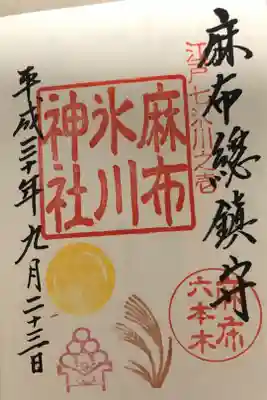 麻布總鎮守
江戸七氷川之壱
麻布
氷川
神社
麻布
六本木
平成三十年九月二十三日